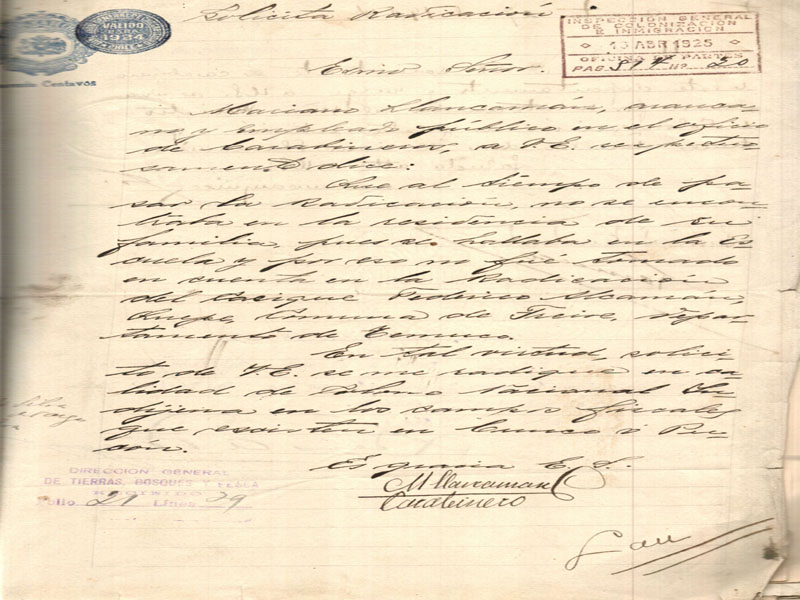 Solicita Radicación
VALIDO
PARA
1934
CHILE
Centavos
INSPECCION GENERAL
DE COLONIZACION
E INMIGRACION
15 ABR 1925
OFICINA DE PARTES
PAG. 317 No 50
Exmo Señor.
Mariano Llancaman, arauca-
no y empleado público en el oficio
de Carabinero, a V.E. respetuo-
samente dice:
Que al tiempo de pa-
sar la Radicación, no se encon-
traba en la residencia de su
familia, pues se hallaba en la Es-
cuela y por eso no fué tomado
en cuenta en la Radicación
del Cacique Federico Alcaman,
Quepe, Comuna de Freire, Depar-
tamento de Temuco.
En tal virtud, solici-
to de V.E. se me radique en ca-
lidad de Colono Nacional In-
dijena en los campos fiscales
que existen en Cunco i Pu-
cón.
Es gracia E. S.
M Llancaman
Carabinero
DIRECCION GENERAL
DE TIERRAS, BOSQUES Y PESCA
Folio 21 Linea 29